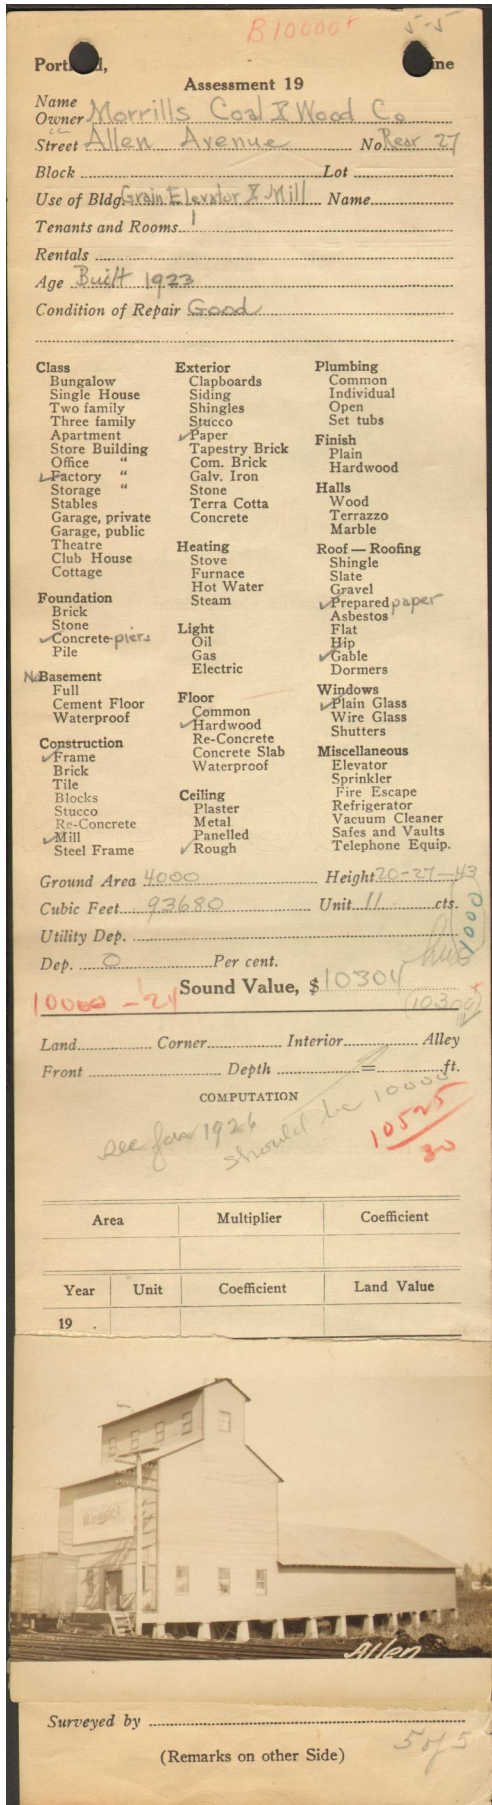 B10000+ 5-5
Portland, Maine
Assessment 19
Name
Owner Morrills Coal & Wood Co
Street Allen Avenue No Rear 27
Block Lot
Use of Bldg. Grain Elevator & Mill Name
Tenants and Rooms 1
Rentals
Age Built 1923
Condition of Repair Good
Class
Bungalow
Single House
Two family
Three family
Apartment
Store Building
Office "
✓Factory "
Storage "
Stables
Garage, private
Garage, public
Theatre
Club House
Cottage
Foundation
Brick
Stone
✓Concrete-piers
Pile
No Basement
Full
Cement Floor
Waterproof
Construction
✓Frame
Brick
Tile
Blocks
Stucco
Re-Concrete
✓Mill
Steel Frame
Exterior
Clapboards
Siding
Shingles
Stucco
✓Paper
Tapestry Brick
Com. Brick
Galv. Iron
Stone
Terra Cotta
Concrete
Heating
Stove
Furnace
Hot Water
Steam
Light
Oil
Gas
Electric
Floor
Common
✓Hardwood
Re-Concrete
Concrete Slab
Waterproof
Ceiling
Plaster
Metal
Panelled
✓Rough
Plumbing
Common
Individual
Open
Set tubs
Finish
Plain
Hardwood
Halls
Wood
Terrazzo
Marble
Roof — Roofing
Shingle
Slate
Gravel
✓Prepared paper
Asbestos
Flat
Hip
✓Gable
Dormers
Windows
✓Plain Glass
Wire Glass
Shutters
Miscellaneous
Elevator
Sprinkler
Fire Escape
Refrigerator
Vacuum Cleaner
Safes and Vaults
Telephone Equip.
Ground Area 4000 Height 20-27-43
Cubic Feet 93680 Unit 11 cts.
Utility Dep.
1000
Dep. 0 Per cent.
10000 - '24 Sound Value, $ 10304
(10300)
Land Corner Interior Alley
Front Depth = ft.
COMPUTATION
see for 1926 should be 10000
10525
30
Area Multiplier Coefficient
Year Unit Coefficient Land Value
19
Allen
Surveyed by
(Remarks on other Side)
5 of 5